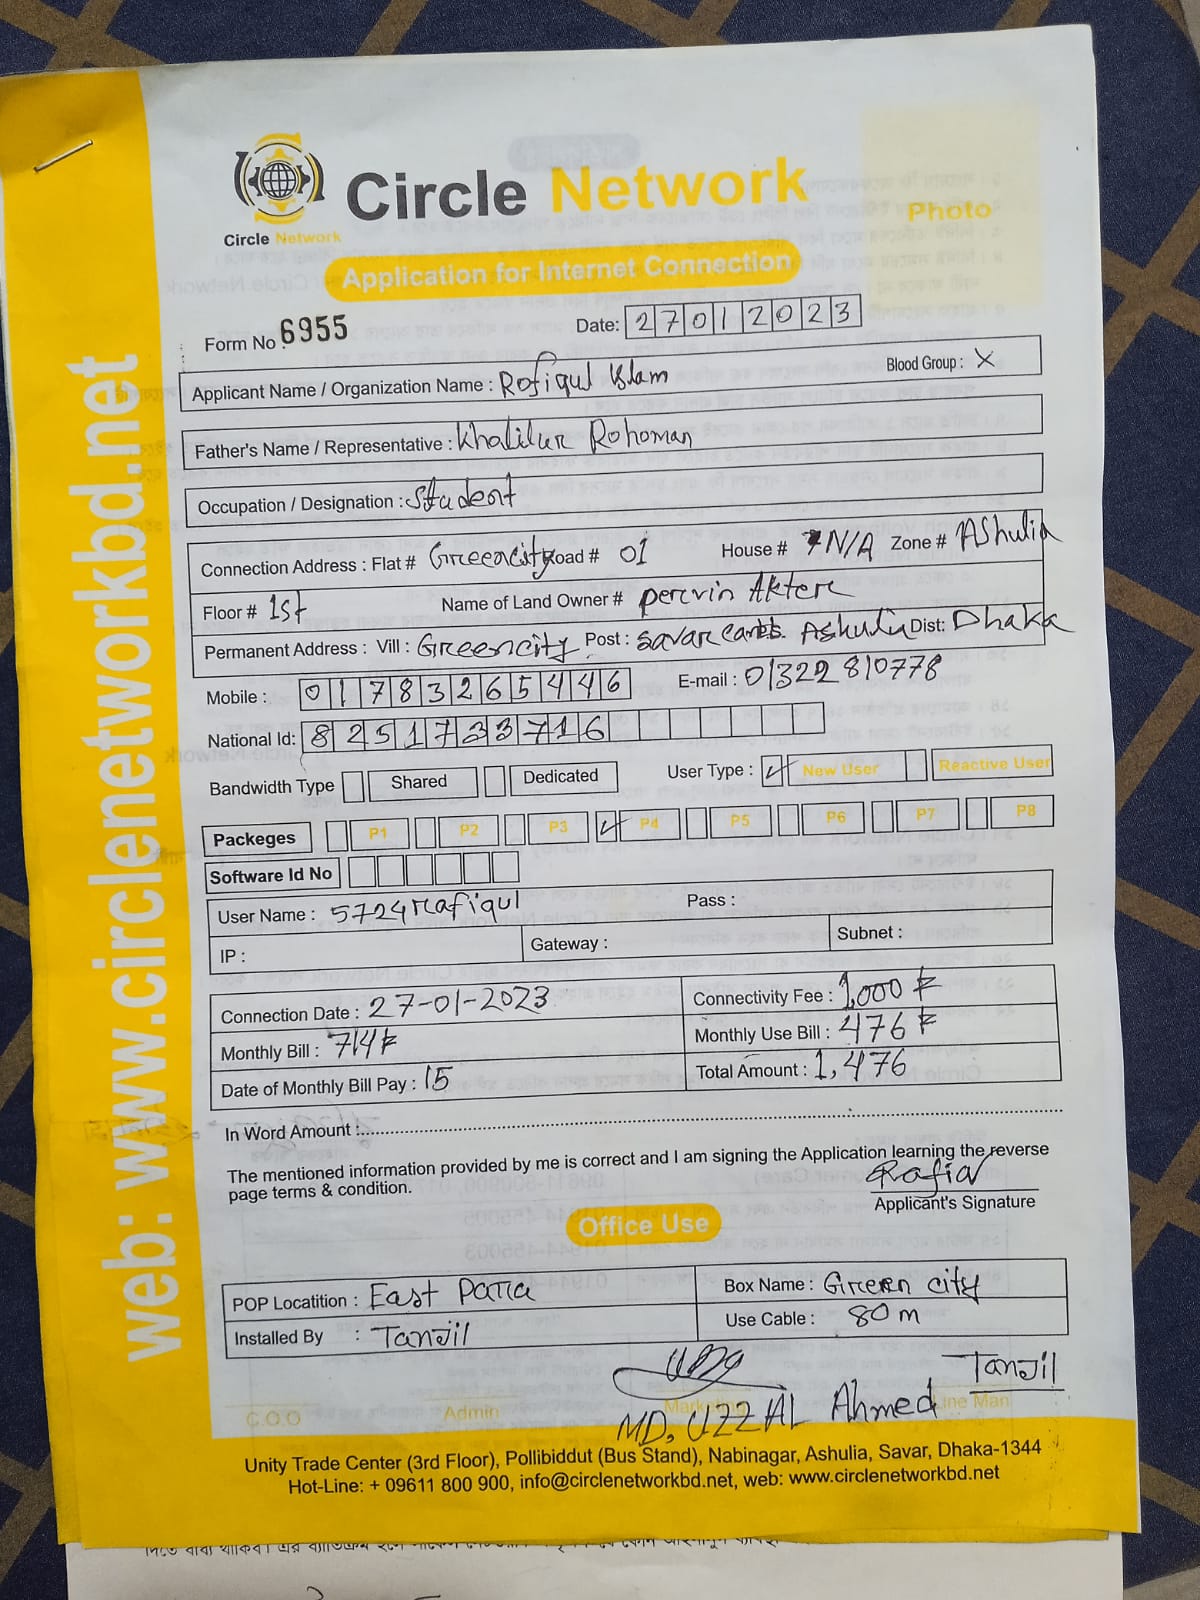 Circle Network
Circle Network
Photo
Application for Internet Connection
Form No. 6955
Date: 27012023
Applicant Name / Organization Name : Rofiqul Islam
Blood Group : X
Father's Name / Representative : Khalilur Rohoman
Occupation / Designation : Student
Connection Address : Flat # Greencity Road # 01 House # N/A Zone # Ashulia
Floor # 1st Name of Land Owner # pervin Akter
Permanent Address : Vill : Greencity Post : Savar cantt. Ashulia Dist: Dhaka
Mobile : 01783265446 E-mail : 01322810778
National Id: 8251733716
Bandwidth Type Shared Dedicated User Type : ✓ New User Reactive User
Packeges P1 P2 P3 ✓ P4 P5 P6 P7 P8
Software Id No
User Name : 5724rafiqul Pass :
IP : Gateway : Subnet :
Connection Date : 27-01-2023 Connectivity Fee : 1,000 ৳
Monthly Bill : 714৳ Monthly Use Bill : 476 ৳
Date of Monthly Bill Pay : 15 Total Amount : 1,476
In Word Amount :
The mentioned information provided by me is correct and I am signing the Application learning the reverse
page terms & condition.
Applicant's Signature
Office Use
POP Locatition : East Para Box Name : Green city
Installed By : Tanjil Use Cable : 80 m
Tanjil
C.O.O Admin Marketing Line Man
MD. UZZAL Ahmed
Unity Trade Center (3rd Floor), Pollibiddut (Bus Stand), Nabinagar, Ashulia, Savar, Dhaka-1344
Hot-Line: + 09611 800 900, info@circlenetworkbd.net, web: www.circlenetworkbd.net
web: www.circlenetworkbd.net